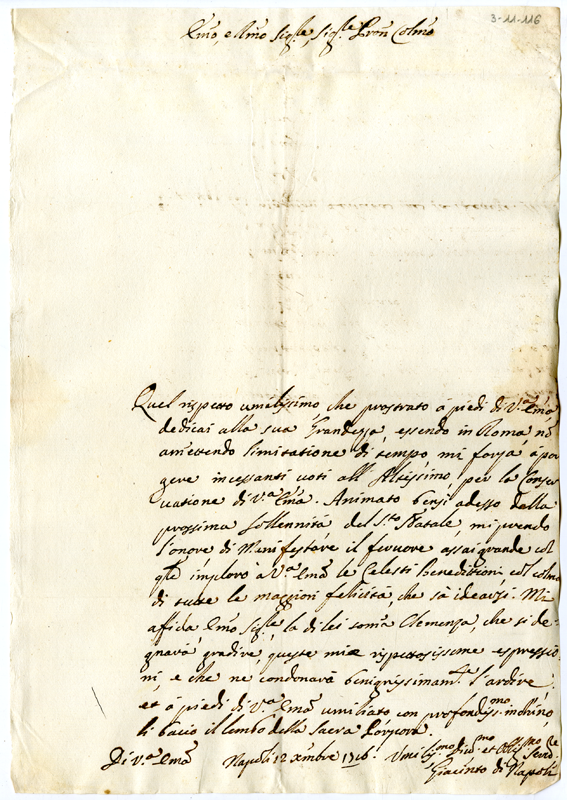 3-11-116
Emo, e Rmo Sig.re, Sig.re Pron Colmo
Quel rispetto umilissimo che prostrato à piedi di V.ra Emã
dedicai alla sua Grandezza, essendo in Roma, nõ
amettendo limitatione di tempo mi forza à por
gere incessanti voti all' Altissimo, per la Conser
vatione di V.ra Emã. Animato bensì adesso dalla
prossima sollennità del S.to Natale, mi prendo
l'onore di Manifestare il fervore assai grande col
qle imploro a V.ra Emã le Celesti Beneditioni, col colmo
di tutte le maggiori felicità, che sà idearsi. Mi
affida Emo Sig.re, la di lei somã Clemenza, che si de-
gnarà gradire, queste mie rispettosissime espressio
ni, e che ne condonarà benignissimam.te l'ardire;
et à piedi di V.ra Emã umiliato con profondiss.mo inchino
li bacio il lembo della Sacra Porpora.
Di V.ra Emã Napoli 12 Xmbre 1716. Umil.mo Div.mo et Obl.mo Serv.re
Giacinto di Napoli